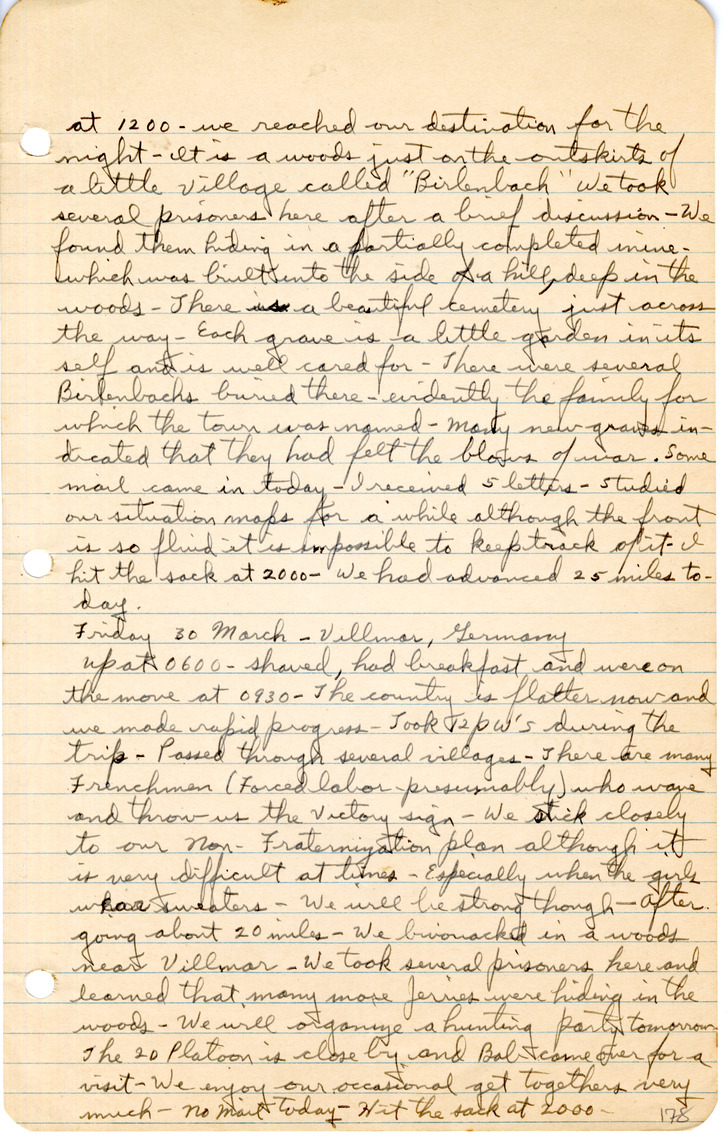 at 1200 - we reached our destination for the
night - It is a woods just on the outskirts of
a little village called "Birlenbach" We took
several prisoners here after a brief discussion - We
found them hiding in a partially completed mine -
which was built into the side of a hill, deep in the
woods - There is a beautiful cemetery just across
the way - Each grave is a little garden in its
self and is well cared for - There were several
Birlenbachs buried there - evidently the family for
which the town was named - Many new graves in-
dicated that they had felt the blows of war. Some
mail came in today - I received 5 letters - Studied
our situation maps for a while although the front
is so fluid it is impossible to keep track of it - I
hit the sack at 2000 - We had advanced 25 miles to-
day.
Friday 30 March - Villmar, Germany
up at 0600 - shaved, had breakfast and were on
the move at 0930 - The country is flatter now and
we made rapid progress - Took 12 PW's during the
trip - Passed through several villages - There are many
Frenchmen (Forced labor - presumably) who wave
and throw us the Victory sign - We stick closely
to our Non-Fraternization plan although it
is very difficult at times - Especially when the girls
wear sweaters - We will be strong though - After
going about 20 miles - We bivouacked in a woods
near Villmar - We took several prisoners here and
learned that many more Jerries were hiding in the
woods - We will organize a hunting party tomorrow
The 2D Platoon is close by and Bob came over for a
visit - We enjoy our occasional get togethers very
much - No Mail today - Hit the sack at 2000 -
178